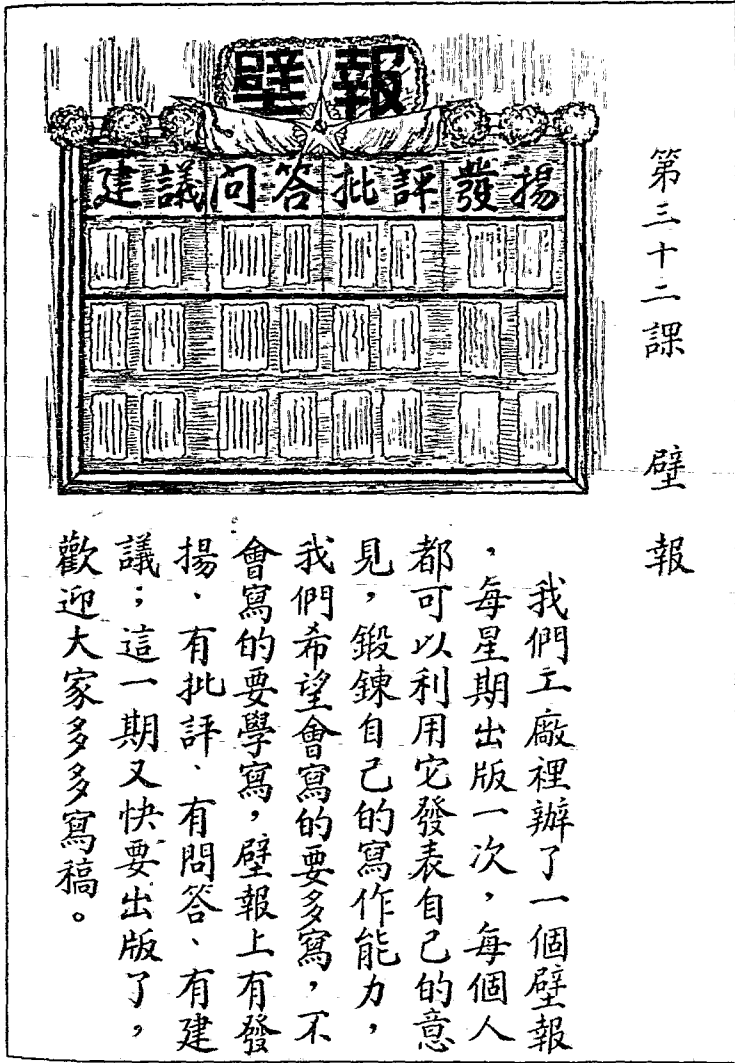 第三十二課　壁報
壁報
建議 问答 批評 發揚
我們工廠裡辦了一個壁報
，每星期出版一次，每個人
都可以利用它發表自己的意
見，鍛鍊自己的寫作能力，
我們希望會寫的要多寫，不
會寫的要學寫，壁報上有發
揚、有批評、有問答、有建
議；這一期又快要出版了，
歡迎大家多多寫稿。